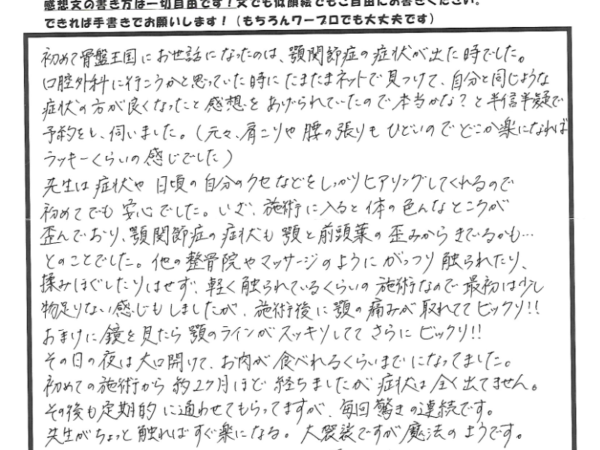 感想文の書き方は一切自由です！文でも似顔絵でもご自由にお書きください。
できれば手書きでお願いします！（もちろんワープロでも大丈夫です）
初めて骨盤王国にお世話になったのは、顎関節症の症状が出た時でした。
口腔外科に行こうかと思っていた時にたまたまネットで見つけて、自分と同じような
症状の方が良くなったと感想をあげられていたので本当かな？と半信半疑で
予約をし、伺いました。（元々、肩こりや腰の張りもひどいのでどこか楽になれば
ラッキーくらいの感じでした）
先生は症状や日頃の自分のクセなどをしっかりヒアリングしてくれるので
初めてでも安心でした。いざ、施術に入ると体の色んなところが
歪んでおり、顎関節症の症状も顎と前頭葉の歪みからきているかも…
とのことでした。他の整骨院やマッサージのようにがっつり触られたり、
揉みほぐしたりはせず、軽く触られているくらいの施術なので最初は少し
物足りない感じもしましたが、施術後に顎の痛みが取れててビックリ!!
おまけに鏡を見たら顎のラインがスッキリしててさらにビックリ!!
その日の夜は大口開けて、お肉が食べれるくらいまでになってました。
初めての施術から約2ヶ月ほど経ちましたが症状は全く出てません。
その後も定期的に通わせてもらってますが、毎回驚きの連続です。
先生がちょっと触ればすぐ楽になる。大袈裟ですが魔法のようです。